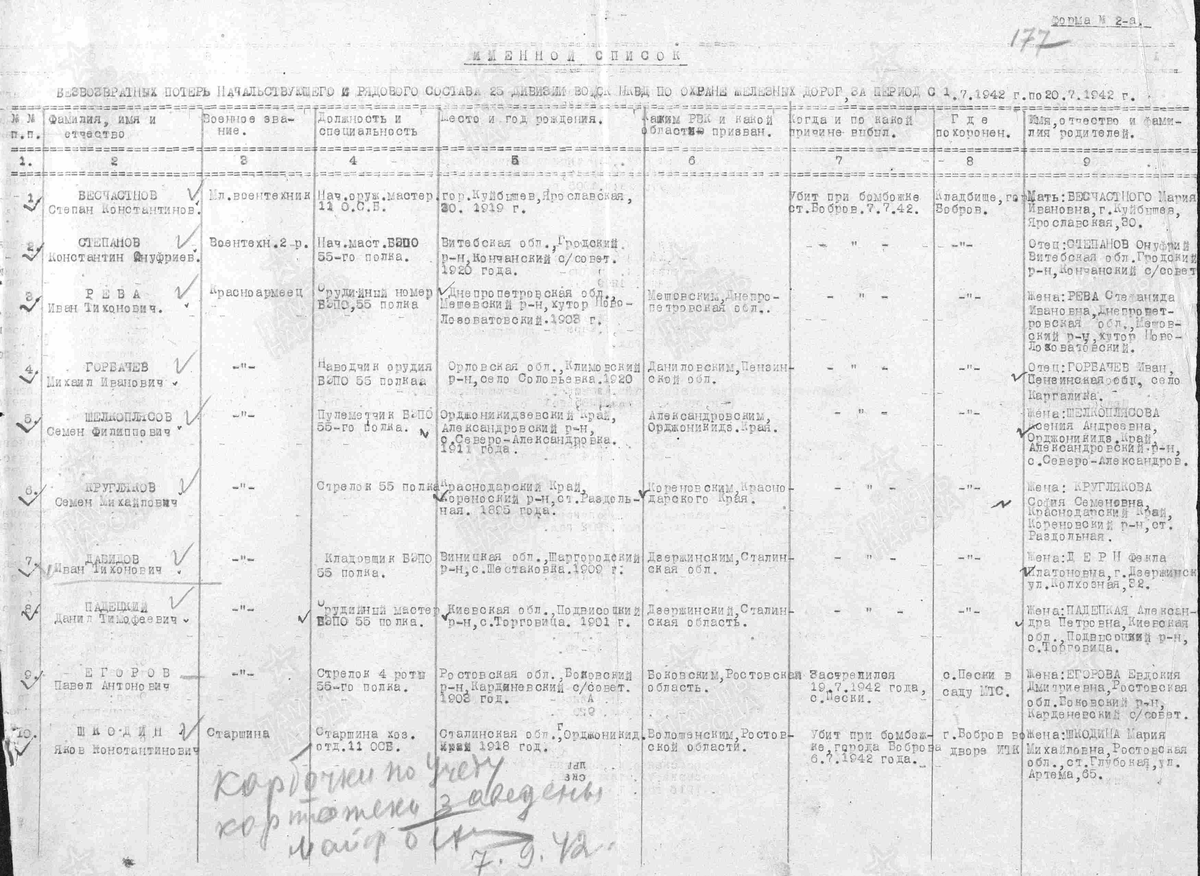 Форма № 2-а.
177
ИМЕННОЙ СПИСОК
БЕЗВОЗВРАТНЫХ ПОТЕРЬ НАЧАЛЬСТВУЮЩЕГО И РЯДОВОГО СОСТАВА 25 ДИВИЗИИ ВОЙСК НКВД ПО ОХРАНЕ ЖЕЛЕЗНЫХ ДОРОГ, ЗА ПЕРИОД С 1.7.1942 г. по 20.7.1942 г.
№ № п.п. Фамилия, имя и отчество Военное зва- ние. Должность и специальность Место и год рождения. Каким РВК и какой областию призван. Когда и по какой причине выбыл. Где похоронен. Имя, отчество и фами- лия родителей.
1. 2 3 4 5 6 7 8 9
1. БЕСЧАСТНОВ Мл.воентехник Нач.оруж.мастер. гор.Куйбышев, Ярославская, Убит при бомбожке Кладбище, гор. Мать: БЕСЧАСТНОГО Мария
Степан Константинов. 11 О.С.Б. 30. 1919 г. ст.Бобров.7.7.42. Бобров. Ивановна, г.Куйбышев,
Ярославская, 30.
2. СТЕПАНОВ Воентехн.2-р. Нач.маст.БЭПО Витебская обл., Гродский. - " - -"- Отец: СТЕПАНОВ Онуфрий
Константин Онуфриев. 55-го полка. р-н, Кончанский с/совет. Витебская обл. Гродский
1920 года. р-н, Кончанский с/совет
3. Р Е В А Красноармеец Орудийный номер Днепропетровская обл., Мешовским, Днепро- - " - -"- Жена: РЕВА Степанида
Иван Тихонович. БЭПО, 55 полка Мешевский р-н, хутор Ново- петровская обл. Ивановна, Днепропет-
Лозоватовский. 1903 г. ровская обл., Мешов-
ский р-н, хутор Ново-
Лозоватовский.
4. ГОРБАЧЕВ -"- Наводчик орудия Орловская обл., Климовский Даниловским, Пензин- - " - -"- Отец: ГОРБАЧЕВ Иван,
Михаил Иванович БЭПО 55 полка. р-н, село Соловьевка. 1920 ской обл. Пензинская обл, село
Каргалика.
5. ШЕЛКОПЛЯСОВ -"- Пулеметчик БЭПО Орджоникидзевский Край, Александровским, - " - -"- Жена: ШЕЛКОПЛЯСОВА
Семен Филиппович 55-го полка. Александровский р-н, Орджоникидз.Край. Ксения Андреевна,
с.Северо-Александровка. Орджоникидз.Край,
1911 года. Александровский р-н,
с.Северо-Александров.
6. КРУГЛЯКОВ -"- Стрелок 55 полка Краснодарский Край, Кореновским, Красно- - " - -"- Жена: КРУГЛЯКОВА
Семен Михайлович Кореноский р-н, ст.Раздоль- дарского Края. София Семеновна,
ная. 1895 года. Краснодарский Край,
Кореновский р-н, ст.
Раздольная.
7. ДАВИДОВ -"- Кладовщик БЭПО Виницкая обл., Шаргородский Дзержинским, Сталин- - " - -"- Жена: Д Е Р И Фекла
Иван Тихонович 55 полка. р-н, с.Шестаковка. 1909 г. ская обл. Платоновна, г.Дзержинск
ул.Колхозная, 32.
8. ПАДЕЦКИЙ -"- Орудийный мастер Киевская обл., Подвисоцкий Дзержинский, Сталин- - " - -"- Жена: ПАДЕЦКАЯ Алексан-
Данил Тимофеевич БЭПО 55 полка. р-н, с.Торговица. 1901 г. ская область. дра Петровна, Киевская
обл., Подвысоцкий р-н,
с.Торговица.
9. Е Г О Р О В -"- Стрелок 4 роты Ростовская обл., Боковский Боковским, Ростовская Застрелился с.Пески в Жена: ЕГОРОВА Евдокия
Павел Антонович 55-го полка. р-н, Кардиневский с/совет. область. 19.7.1942 года, саду МТС. Дмитриевна, Ростовская
1903 год. с.Пески. обл. Боковский р-н,
Карденевский с/совет.
10. Ш К О Д И Н Старшина Старшина хоз. Сталинская обл., Орджоникид. Волошенским, Ростов- Убит при бомбож- г.Бобров во Жена: ШКОДИНА Мария
Яков Константинович отд.11 ОСБ. Край 1918 год. ской области. ке, города Боброва дворе ИТК Михайловна, Ростовская
6.7.1942 года. обл., ст.Глубокая, ул.
Артема, 65.
Карточки по учету
картотеки заведены
майор
7.9.42.